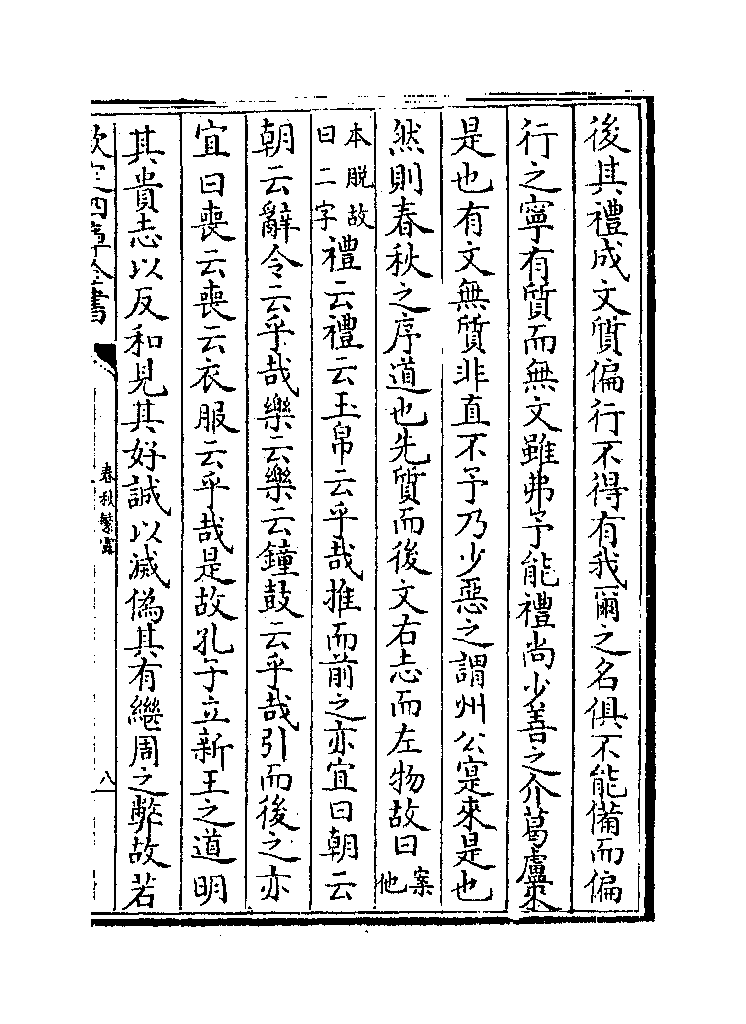 後其禮成文質偏行不得有我爾之名俱不能備而偏
行之寧有質而無文雖弗予能禮尚少善之介葛盧來
是也有文無質非直不予乃少惡之謂州公寔來是也
然則春秋之序道也先質而後文右志而左物故曰案他
本脱故曰二字禮云禮云玉帛云乎哉推而前之亦宜曰朝云
朝云辭令云乎哉樂云樂云鐘鼓云乎哉引而後之亦
宜曰喪云喪云衣服云乎哉是故孔子立新王之道明
其貴志以反和見其好誠以滅偽其有繼周之弊故若
欽定四庫全書
春秋繁露
八